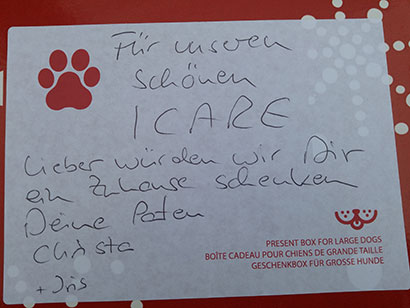 Für unseren
schönen
ICARE
Lieber würden wir Dir
ein Zuhause schenken
Deine Paten
Christa
+ Iris
PRESENT BOX FOR LARGE DOGS
BOÎTE CADEAU POUR CHIENS DE GRANDE TAILLE
GESCHENKBOX FÜR GROSSE HUNDE